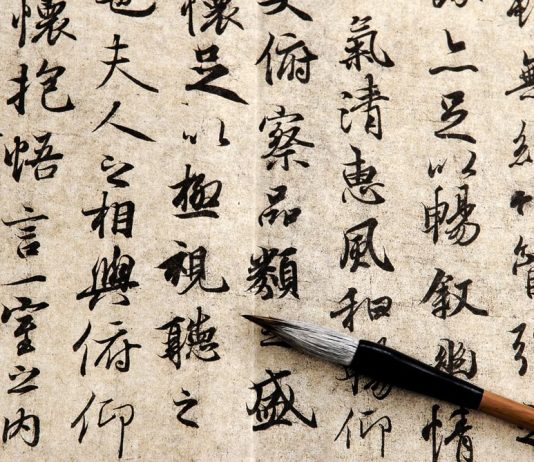 無絲竹管弦
亦足以暢叙幽情
氣清惠風和暢仰
大俯察品類之盛
懷足以極視聽之
也夫人之相與俯仰
懷抱悟言一室之内